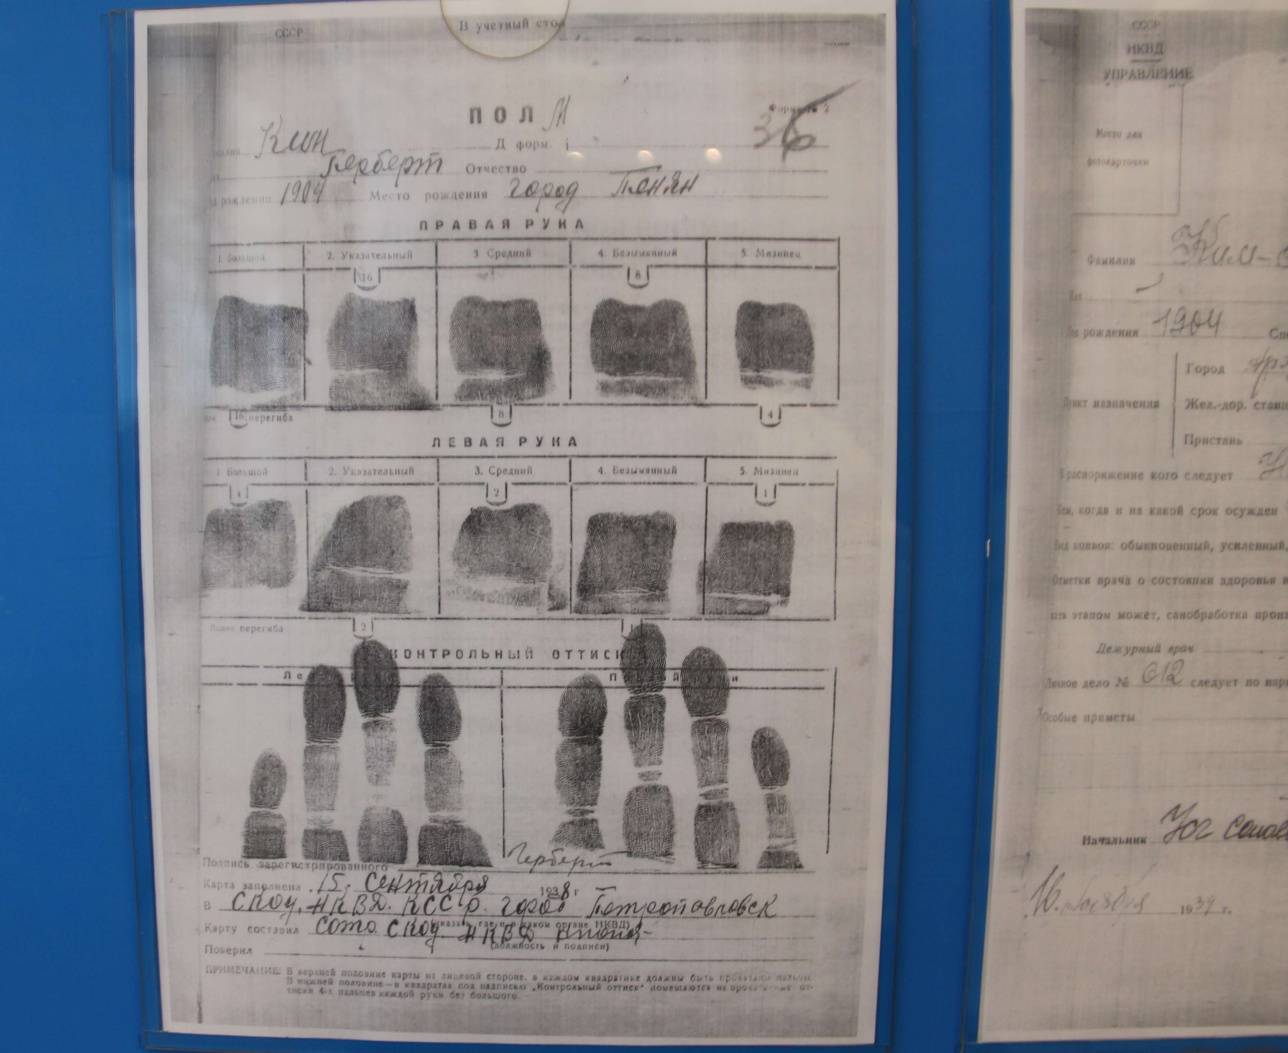 СССР
В учетный стол
ПОЛ М
Форма № 2
36
Ким
Д форм.
Герберт Отчество
рождения 1904 Место рождения город Пенян
ПРАВАЯ РУКА
1 Большой 2. Указательный 3 Средний 4. Безымянный 5. Мизинец
16 8
16 перегиба 8 4
ЛЕВАЯ РУКА
1 Большой 2. Указательный 3. Средний 4. Безымянный 5. Мизинец
4 2 1
Линия перегиба 2
КОНТРОЛЬНЫЙ ОТТИСК
Подпись зарегистрированного Герберт
Карта заполнена 15. сентября 1938 г
В СКОУ. НКВД. КССР. город Петропавловск
(указать где и в каком органе НКВД)
Карту составил СКОУ НКВД
(должность и подпись)
Проверил
ПРИМЕЧАНИЕ: В верхней половине карты на лицевой стороне, в каждом квадратике должны быть
В нижней половине—в квадратах под надписью „Контрольный оттиск" помещаются
4-х пальцев каждой руки без большого.
СССР
НКВД
УПРАВЛЕНИЕ
Место для
фотокарточки
Фамилия Ким-
рождения 1904
Город
Пункт назначения Жел.-дор.
Пристань
распоряжение кого следует
когда и на какой срок осужден
конвоя: обыкновенный, усиленный,
Отметки врача о состоянии здоровья
этапом может, санобработка
Дежурный врач
Личное дело № 612 следует по
Особые приметы
Начальник
1939 г.